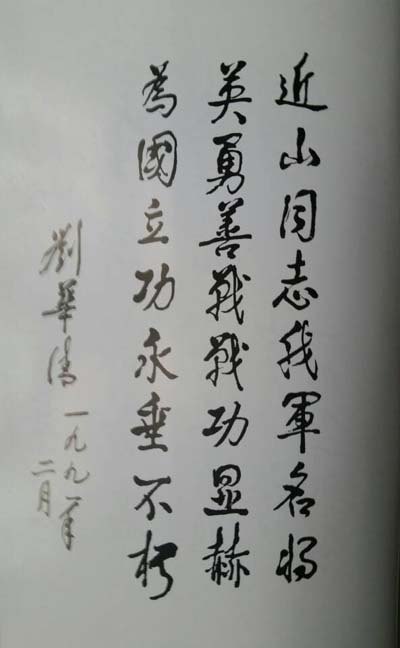 近山同志我軍名将
英勇善戰戰功显赫
為國立功永垂不朽
劉華清一九九一年
二月